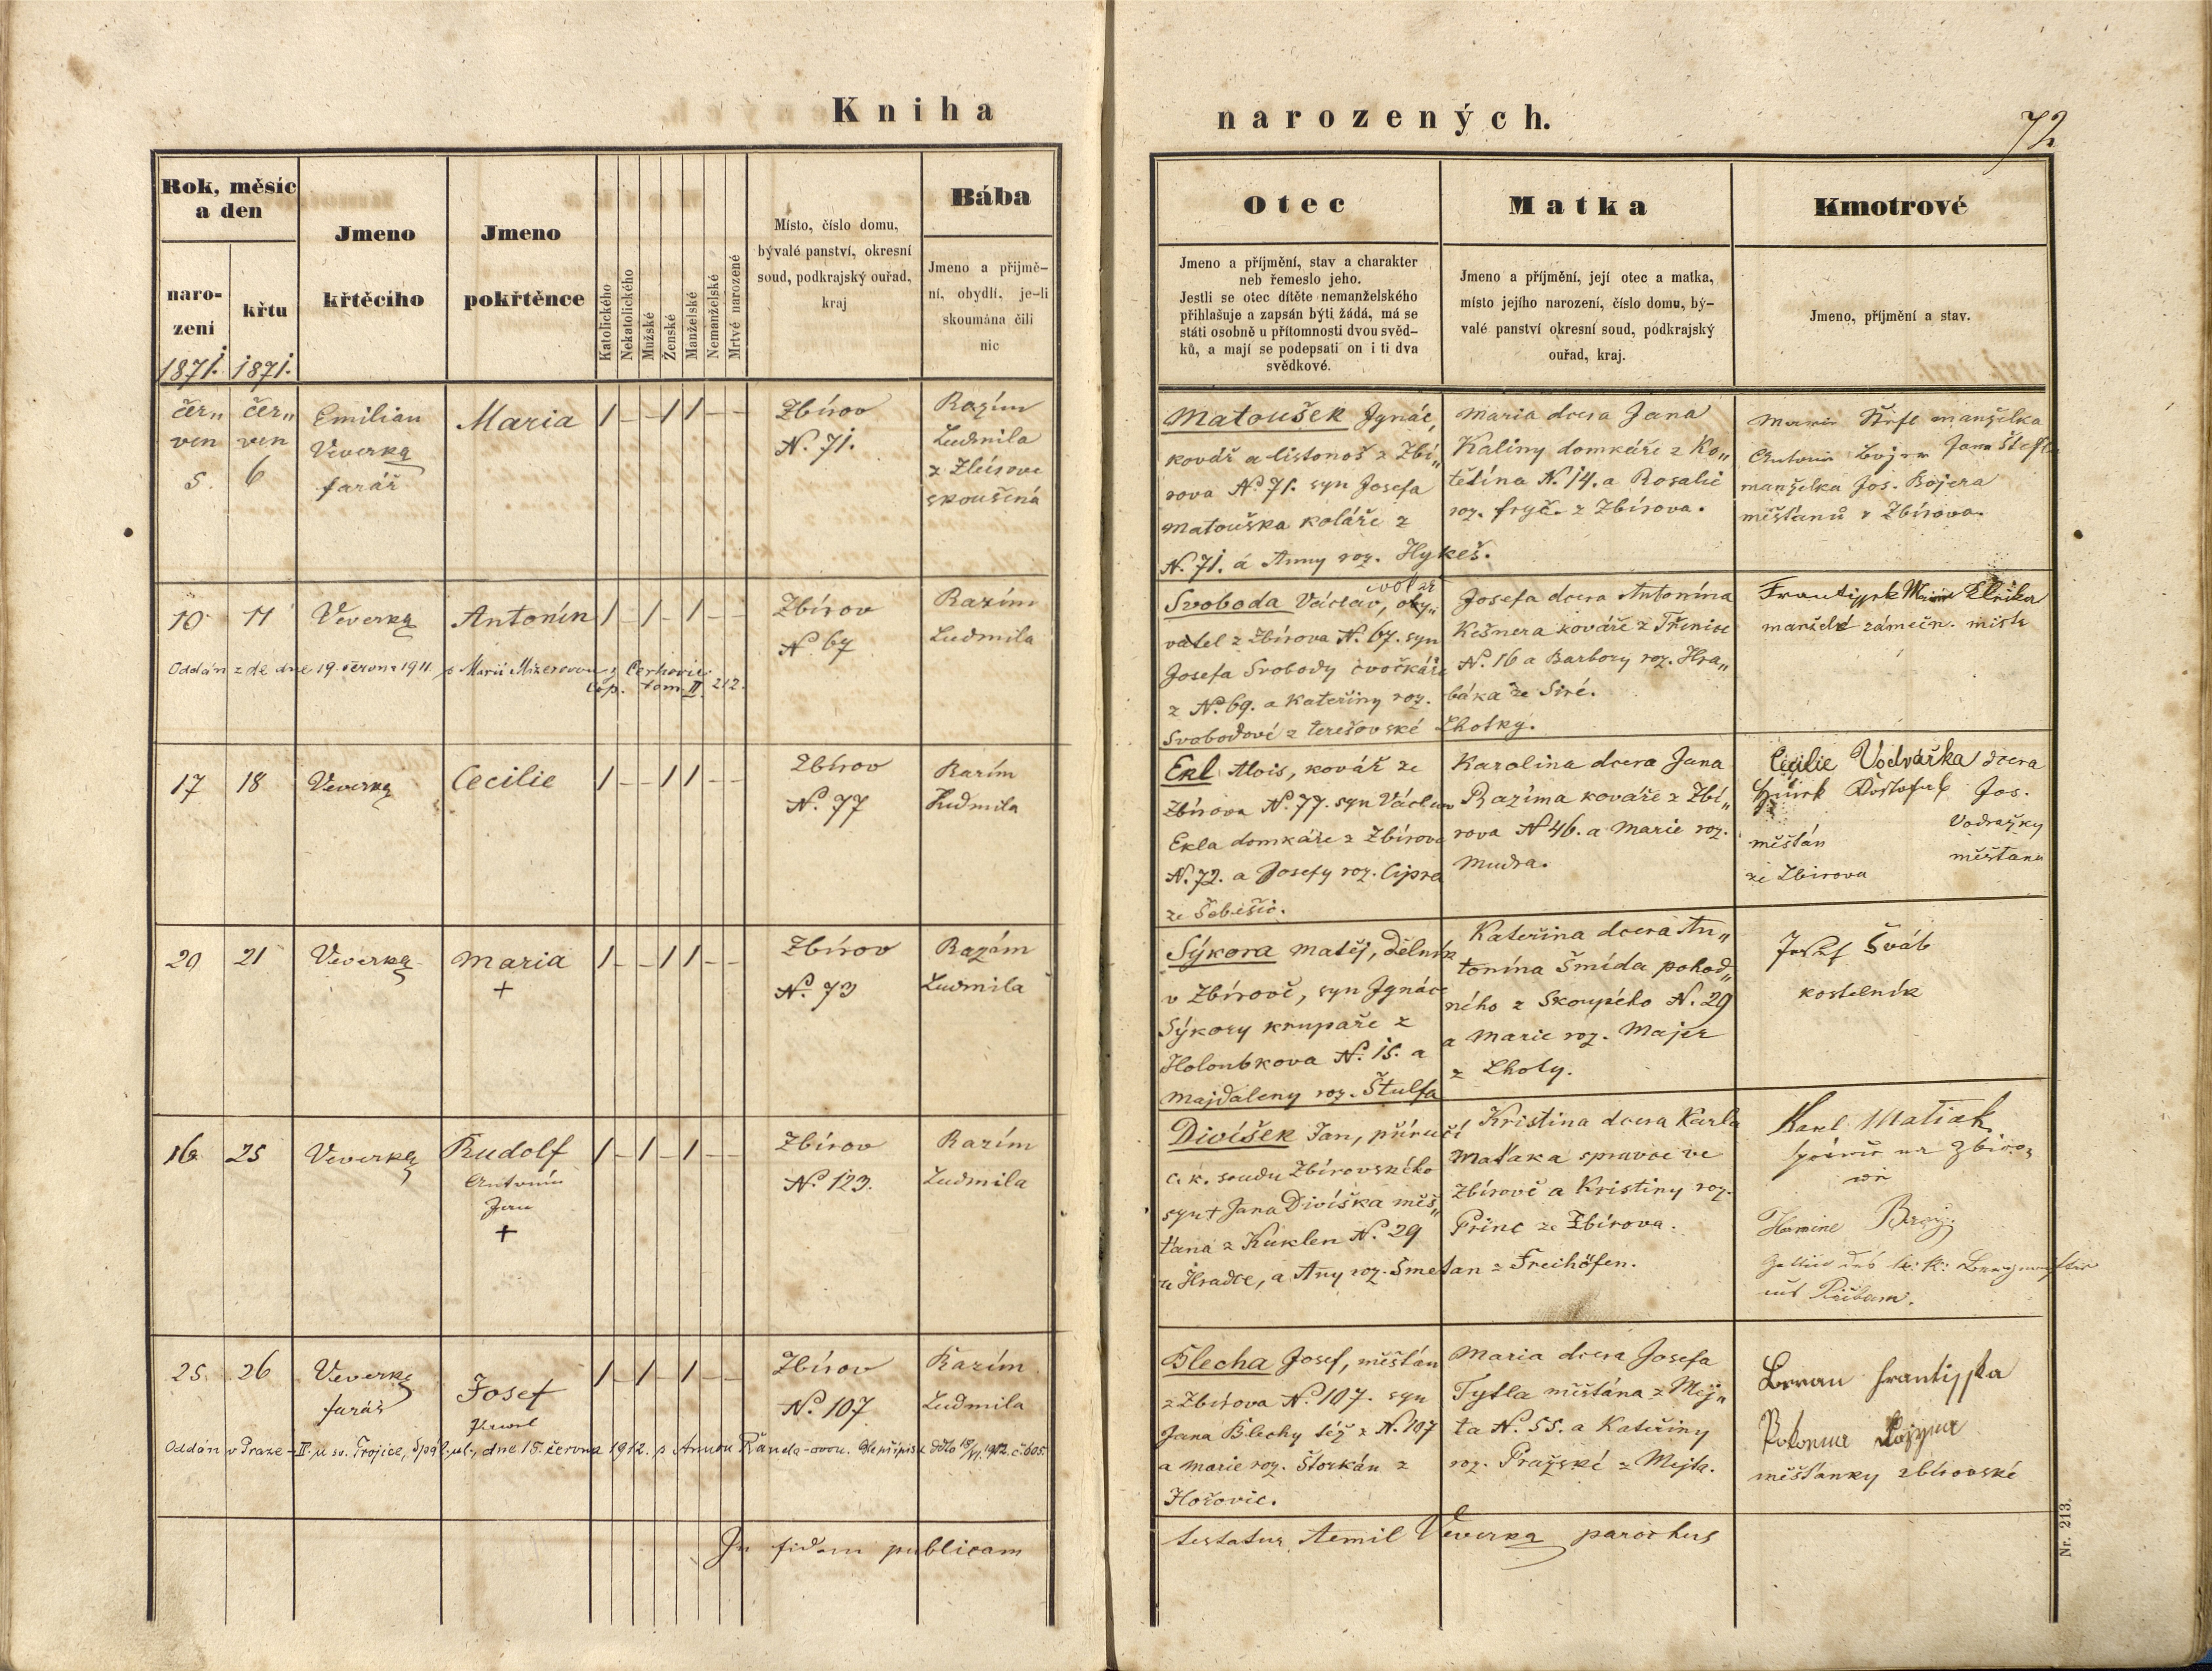 Kniha
narozených.
72
Rok, měsíc
a den
naro-
zení
1871.
křtu
1871.
Jmeno
křtěcího
Jmeno
pokřtěnce
Katolického
Nekatolického
Mužské
Ženské
Manželské
Nemanželské
Mrtvě narozené
Místo, číslo domu,
bývalé panství, okresní
soud, podkrajský ouřad,
kraj
Bába
Jmeno a přijmě-
ní, obydlí, je-li
skoumána čili
nic
Otec
Jmeno a příjmění, stav a charakter
neb řemeslo jeho.
Jestli se otec dítěte nemanželského
přihlašuje a zapsán býti žádá, má se
státi osobně u přítomnosti dvou svěd-
ků, a mají se podepsati on i ti dva
svědkové.
Matka
Jmeno a příjmění, její otec a matka,
místo jejího narození, číslo domu, bý-
valé panství okresní soud, podkrajský
ouřad, kraj.
Kmotrové
Jmeno, příjmění a stav.
čer„
ven
5.
čer„
ven
6
Emilian
Veverka
farář
Maria
/ – – / / – –
Zbírov
N. 71.
Razím
Ludmila
z Zbírova
skoušená
Matoušek Ignác,
kovář a listonoš z Zbí„
rova No 71. syn Josefa
Matouška koláře z
N. 71. a Anny roz. Hykeš.
Maria dcera Jana
Kaliny domkáře z Ko„
tětína N. 14. a Rosalie
roz. fryč. z Zbírova.
manželka
Jana Štefl
manželka Jos. Bojera
měšťanů z Zbírova.
10
11
Veverka
Antonín
/ – / – / – –
Zbírov
No 67
Razím
Ludmila
Oddán z de dne 19. června 1911. s Marií Mizerovou z Cerhovic
cop. tom II. 212.
Svoboda Václav, oby„
vatel z Zbírova No. 67. syn
Josefa Svobody cvočkáře
z No. 69. a Kateřiny roz.
Svobodové z terešovské Lhotky.
Josefa dcera Antonína
Kešnera kováře z Třenice
No. 16 a Barbory roz. Hra„
báka ze Siré.
Frantisek Marie Kliker
manželé zámečn. mistr
17
18
Veverka
Cecilie
/ – – / / – –
Zbírov
No. 77
Razím
Ludmila
Ekl Alois, kovář ze
Zbírova No. 77. syn Václava
Ekla domkáře z Zbírova
N. 72. a Josefy roz. Cipra
ze Šebešic.
Karolina dcera Jana
Razíma kováře z Zbí„
rova No 46. a Marie roz.
Mudra.
Cecilie Vodvářka dcera
Jos.
Vodražky
měšťana
měšťán
ze Zbirova
20
21
Veverka
Maria
+
/ – – / / – –
Zbírov
No. 73
Razím
Ludmila
Sýkora Matěj, dělník
v Zbírově, syn Ignáce
Sýkory krupaře z
Holoubkova No. 15. a
Majdaleny roz. Štulfa
Kateřina dcera An„
tonína Šmída pohod„
ného z Skoupého N. 29
a Marie roz. Majer
z Lhoty.
Josef Šváb
kostelník
16
25
Veverka
Rudolf
Antonín
Jan
+
/ – / – / – –
Zbírov
No 123.
Razím
Ludmila
Divíšek Jan, příručí
c. k. soudu Zbírovského
syn + Jana Divíška měš„
ťana z Kuklen No. 29
u Hradce, a Any roz. Smetan z Freihöfen.
Kristina dcera Karla
Maťaka správce ve
Zbírově a Kristiny roz.
Princ ze Zbírova.
Karl Matiak
Hermine
Gattin des k: k: Bergmeisters
aus Přibam.
25.
26
Veverka
farář
Josef
Karel
/ – / – / – –
Zbírov
No. 107
Razím
Ludmila
Oddán v Praze-II. u sv. Trojice, Spál. ul., dne 15. června 1912. s Annou
Blecha Josef, měšťán
z Zbírova No. 107. syn
Jana Blechy též z N. 107
a Marie roz. Štorkán z
Hořovic.
Maria dcera Josefa
Tytla měšťána z Mej„
ta No. 55. a Kateřiny
roz. Pražské z Mejta.
Beran Frantiska
měšťanky zbirovské
In fidem publicam
testatur Aemil Veverka parochus
Nr. 213.